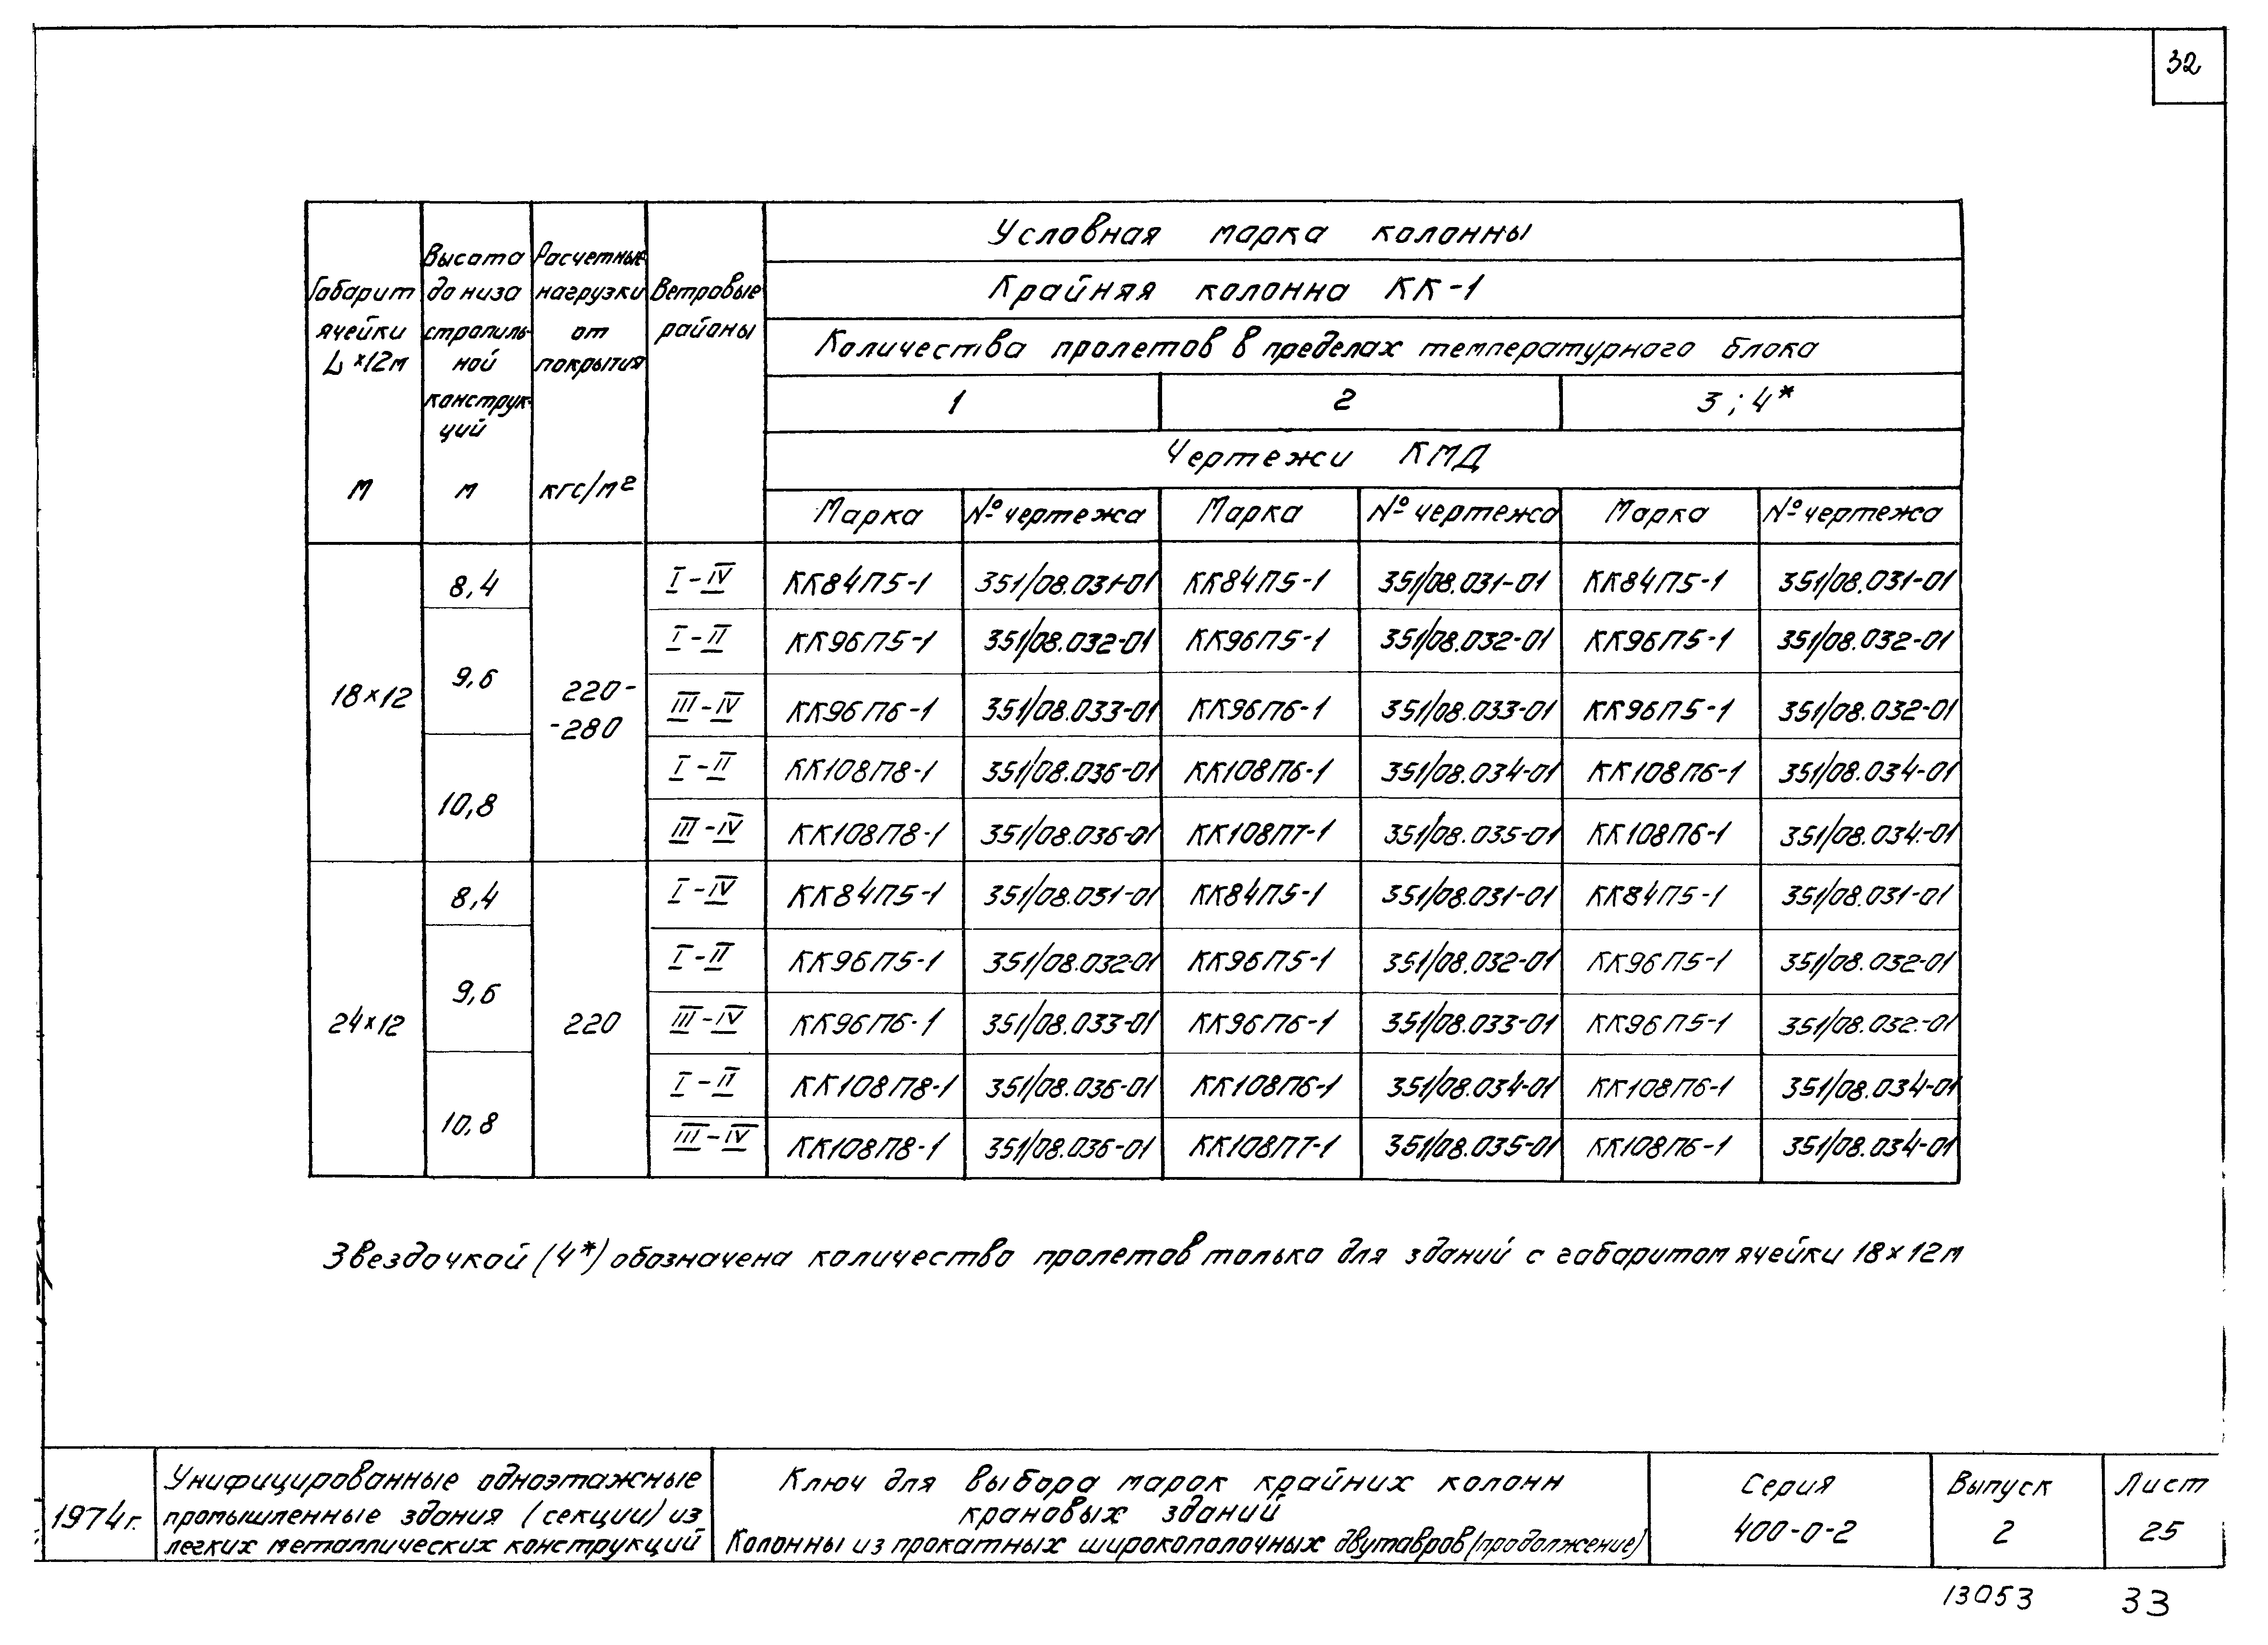 32
Условная марка колонны
Крайняя колонна КК-1
Количества пролетов в пределах температурного блока
1 2 3; 4*
Чертежи КМД
Габарит ячейки L×12м м
Высота до низа стропиль- ной конструк- ций м
Расчетные нагрузки от покрытия кгс/м²
Ветровые районы
Марка №чертежа Марка №чертежа Марка №чертежа
18×12 8,4 220- -280 I-IV КК84П5-1 351/08.031-01 КК84П5-1 351/08.031-01 КК84П5-1 351/08.031-01
9,6 I-II КК96П5-1 351/08.032-01 КК96П5-1 351/08.032-01 КК96П5-1 351/08.032-01
III-IV КК96П6-1 351/08.033-01 КК96П6-1 351/08.033-01 КК96П5-1 351/08.032-01
10,8 I-II КК108П8-1 351/08.036-01 КК108П6-1 351/08.034-01 КК108П6-1 351/08.034-01
III-IV КК108П8-1 351/08.036-01 КК108П7-1 351/08.035-01 КК108П6-1 351/08.034-01
24×12 8,4 220 I-IV КК84П5-1 351/08.031-01 КК84П5-1 351/08.031-01 КК84П5-1 351/08.031-01
9,6 I-II КК96П5-1 351/08.032-01 КК96П5-1 351/08.032-01 КК96П5-1 351/08.032-01
III-IV КК96П6-1 351/08.033-01 КК96П6-1 351/08.033-01 КК96П5-1 351/08.032-01
10,8 I-II КК108П8-1 351/08.036-01 КК108П6-1 351/08.034-01 КК108П6-1 351/08.034-01
III-IV КК108П8-1 351/08.036-01 КК108П7-1 351/08.035-01 КК108П6-1 351/08.034-01
Звездочкой (4*) обозначена количество пролетов только для зданий с габаритом ячейки 18×12м
1974г.
Унифицированные одноэтажные
промышленные здания (секции) из
легких металлических конструкций
Ключ для выбора марок крайних колонн
крановых зданий
Колонны из прокатных широкополочных двутавров (продолжение)
Серия
400-0-2
Выпуск
2
Лист
25
13053 33